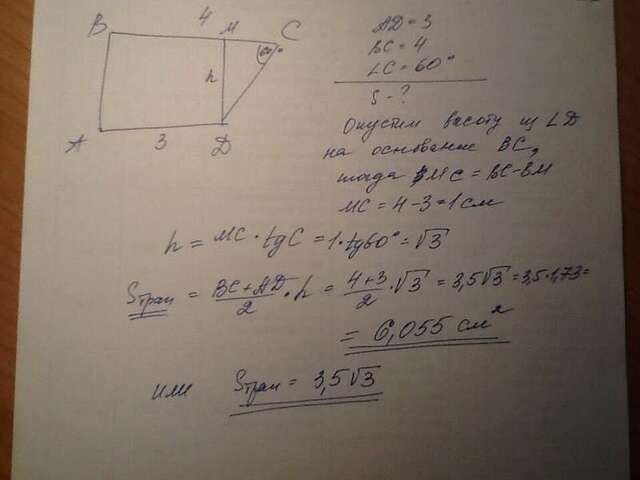 B 4 M C
60°
h
A 3 D
AD = 3
BC = 4
∠C = 60°
S - ?
Опустим высоту из ∠D
на основание BC,
тогда MC = BC - BM
MC = 4 - 3 = 1 см
h = MC · tgC = 1 · tg60° = √3
Sтрап = (BC + AD)/2 · h = (4+3)/2 · √3 = 3,5√3 = 3,5·1,73 =
= 6,055 см²
или Sтрап = 3,5√3